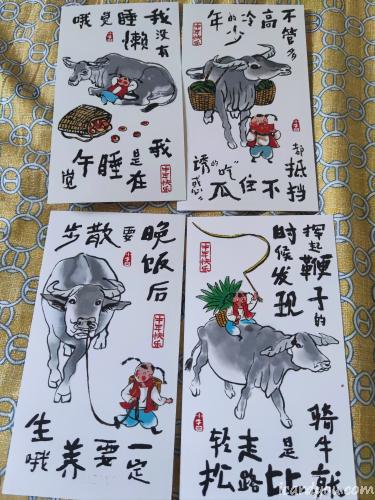 我没有
睡懒
觉
哦
我
是在
睡
午
觉
牛年快乐
不管多
高
冷
的少
年
都抵挡
不
住
“吃瓜”
的
诱惑
牛年快乐
晚饭后
要
散
步
牛年快乐
一定
要
养
生哦
挥起
鞭子的
时候发现
牛年快乐
骑牛就
是比
走路
轻松